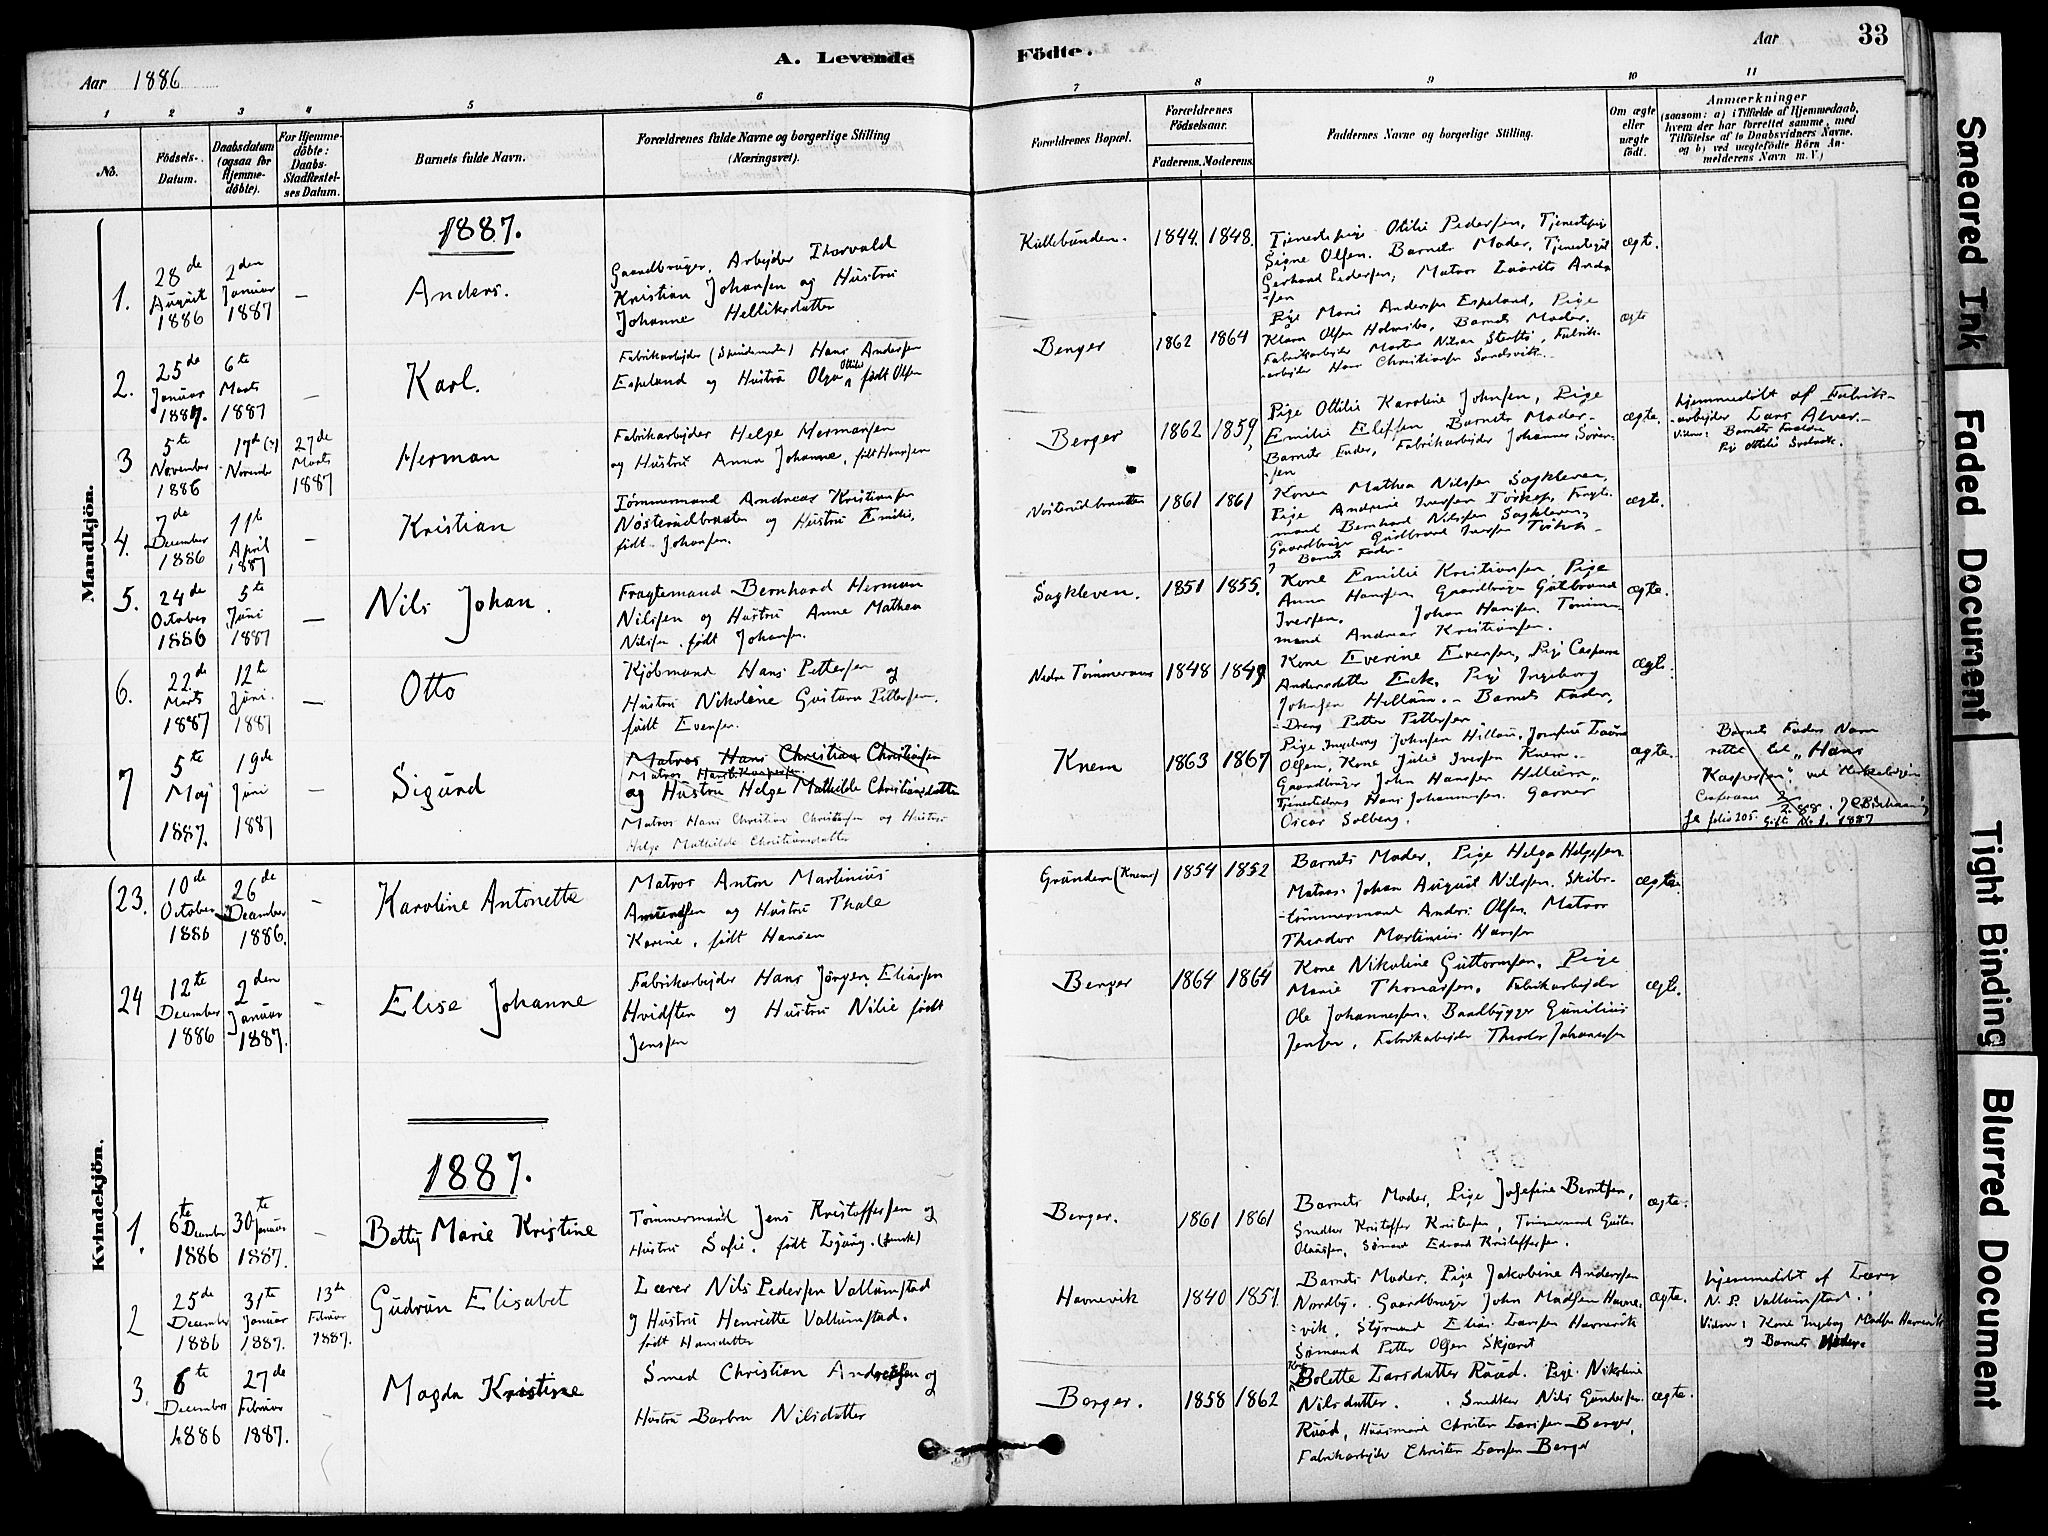 A. Levende Födte.
Aar 1886
Aar 33
1 2 3 4 5 6 7 8 9 10 11
No.
Födsels-Datum.
Daabsdatum (ogsaa for Hjemme-döbte).
For Hjemme-döbte: Daabs-Stadfæstel-ses Datum.
Barnets fulde Navn.
Forældrenes fulde Navne og borgerlige Stilling (Næringsvei).
Forældrenes Bopæl.
Forældrenes Födselsaar.
Faderens. Moderens.
Faddernes Navne og borgerlige Stilling.
Om ægte eller uægte födt.
Anmærkninger
(saasom: a) i Tilfælde af Hjemmedaab, hvem der har forrettet samme, med Tilföielse af to Daabsvidners Navne, og b) ved uægtefödte Börn An-melderens Navn m. V.)
Mandkjön.
1887.
1. 28de August 1886
2den Januar 1887
–
Anders.
Gaardbruger, Arbejder Thorvald
Kristian Johansen og Hustru
Johanne
Kullebunden.
1844. 1848.
Tjenestepige Otilie Pedersen, Tjenestepige
Signe Olsen. Barnets Moder, Tjenestegut
Gerhard Pedersen, Matros Laurits Ander
-sen
ægte.
2. 25de Januar 1887.
6te Marts 1887
–
Karl.
Fabrikarbejder Hans Andersen
Espeland og Hustru Olga Ottilie født Olsen
Berger
1862 1864
Pige Marie Andersen Espeland, Pige
Klara Olsen Holmsbo, Barnets Moder.
Fabrikarbejder Morten Nilsen Fabrik-
-arbejder Hans Christiansen Sandsvik.
ægte
3 5te November 1886
17de (?) November
27de Marts 1887
Herman
Fabrikarbejder Helge Hermansen
og Hustru Anna Johanne, født Hansen
Berger
1862 1859
Pige Ottilie Karoline Johnsen, Pige
Emilie Elefsen Barnets Moder.
Barnets Fader, Fabrikarbejder Johannes Søren-
sen
ægte.
Hjemmedøbt af Fabrik-
-arbejder Lars Alver.
Vidner: Barnets Forældre
Pige Ottilie
4. 7de December 1886
11te April 1887
–
Kristian
Tømmermand Andreas Kristiansen
Nøsterudbraaten og Hustru Emilie,
født Johansen.
Nøsterudbraaten
1861 1861
Konen Mathea Nilsen Sagkleven,
Pige Andrine Iversen Fragte-
mand Bernhard Nilssen Sagkleven,
Gaardbruger Gudbrand Iversen
Barnets Fader
ægte.
5. 24de October 1886
5te Juni 1887
–
Nils Johan.
Fragtemand Bernhard Herman
Nilssen og Hustru Anne Mathea
Nilssen født Johansen.
Sagkleven.
1851 1855.
Kone Emilie Kristiansen, Pige
Anna Hansen, Gaardbruger Gulbrand
Iversen. Johan Hansen. Tømmer-
mand Andreas Kristiansen.
ægte.
6. 22de Marts 1887
12te Juni 1887
–
Otto
Kjøbmand Hans Pettersen og
Hustru Nikoline Gustava Pettersen,
født Evensen.
Nedre Tømmeraas
1848 1849
Kone Everine Evensen, Pige Caspara
Andersdatter Eek, Pige Ingeborg
Johnsen Hellum. Barnets Fader,
Dreng Petter Pettersen
ægte.
7 5te Maj 1887.
19de Juni 1887
–
Sigurd
Matros Hans Christian Christiansen
Matros Hans Kaspersen
og Hustru Helga Mathilde Christiansdatter
Matros Hans Christian Christiansen og Hustru
Helga Mathilde Christiansdatter
Knem
1863 1867
Pige Ingeborg Johnsen Hellum, Josefine Laura
Olsen, Kone Julie Iversen Knem.
Gaardbruger John Hansen Hellum,
Tjenestedreng Hans Johannessen. Garver
Oscar Solberg.
ægte.
Barnets Faders Navn
rettet til „Hans
Kaspersen“ ved Kirkebogen
folio 205. Gifte No 1. 1887
Kvindekjön.
23. 10de October 1886
26de December 1886.
–
Karoline Antonette
Matros Anton Martinius
Amundsen og Hustru Thale
Karine, født Hansen
Grunden (Knem)
1854 1852
Barnets Moder, Pige Helga Helgesen
Matros Johan August Nilssen. Skibs-
-tømmermand Anders Olsen. Matros
Theodor Martinius Hansen
ægte.
24 12te December 1886
2den Januar 1887.
–
Elise Johanne
Fabrikarbejder Hans Jørgen Eliassen
Hvidsten og Hustru Nilie født
Jenssen
Berger
1864 1864
Kone Nikoline Guttormsen, Pige
Marie Thomassen, Fabrikarbejder
Ole Johannessen. Baadbygger Gunilius
Jensen, Fabrikarbejder Theodor Johannessen
ægte.
1887.
1. 6te December 1886
30te Januar 1887.
–
Betty Marie Kristine
Tømmermand Jens Kristoffersen og
Hustru Sofie. født
Berger.
1861 1861
Barnets Moder, Pige Josefine Berntsen,
Snedker Kristoffer Kristensen, Tømmermand Gustav
Olaussen, Sømand Edvard Kristoffersen.
ægte.
2 25de December 1886
31te Januar 1887.
13de Februar 1887.
Gudrun Elisabet
Lærer Nils Pedersen Vallumstad
og Hustru Henriette Vallumstad.
født Hansdatter
Havnevik
1840 1851
Barnets Moder, Pige Jakobine Anderssen
Nordby. Gaardbruger John Madsen Havne-
-vik, Styrmand Elias Larssen Havnevik
Sømand Petter Olsen Skjæret
ægte.
Hjemmedøbt af Lærer
N. P. Vallumstad.
Vidner: Kone Ingeborg Madsen Havnevik
og Barnets Moder.
3. 6te December 1886
27de Februar 1887.
Magda Kristine
Smed Christian Andreassen og
Hustru Barbra Nilsdatter
Berger.
1858 1862
Kone Bolette Larsdatter Ruud. Pige Nikoline
Nilsdatter. Snedker Nils Gundersen
Ruud, Husmand Christen Larssen Berger,
Fabrikarbejder Christen Larssen Berger
ægte.
Smeared Ink
Faded Document
Tight Binding
Blurred Document